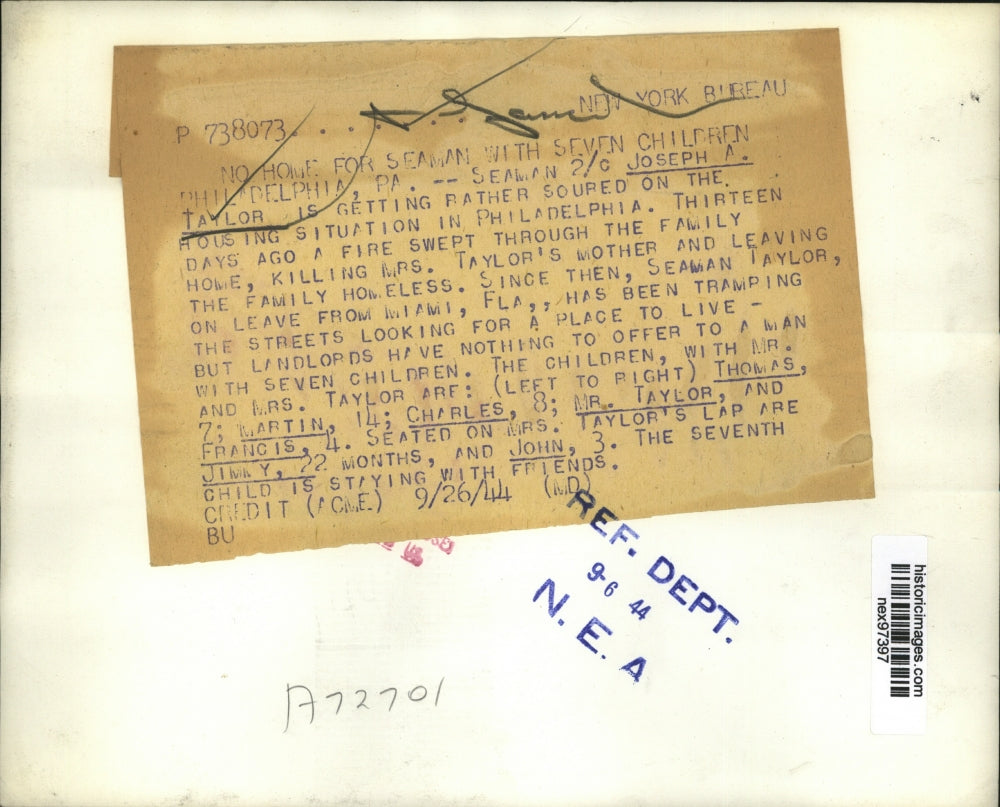 NEW YORK BUREAU
P 738073. . . . . . .
NO HOME FOR SEAMAN WITH SEVEN CHILDREN
PHILADELPHIA, PA. -- SEAMAN 2/C JOSEPH A.
TAYLOR IS GETTING RATHER SOURED ON THE
HOUSING SITUATION IN PHILADELPHIA. THIRTEEN
DAYS AGO A FIRE SWEPT THROUGH THE FAMILY
HOME, KILLING MRS. TAYLOR'S MOTHER AND LEAVING
THE FAMILY HOMELESS. SINCE THEN, SEAMAN TAYLOR,
ON LEAVE FROM MIAMI, FLA,, HAS BEEN TRAMPING
THE STREETS LOOKING FOR A PLACE TO LIVE -
BUT LANDLORDS HAVE NOTHING TO OFFER TO A MAN
WITH SEVEN CHILDREN. THE CHILDREN, WITH MR.
AND MRS. TAYLOR ARE: (LEFT TO RIGHT) THOMAS,
7; MARTIN, 14; CHARLES, 8; MR. TAYLOR, AND
FRANCIS, 4. SEATED ON MRS. TAYLOR'S LAP ARE
JIMMY, 22 MONTHS, AND JOHN, 3. THE SEVENTH
CHILD IS STAYING WITH FRIENDS.
CREDIT (ACME) 9/26/44 (MD)
BU
REF. DEPT.
9-6 44
N. E. A
A72701
historicimages.com
nex97397